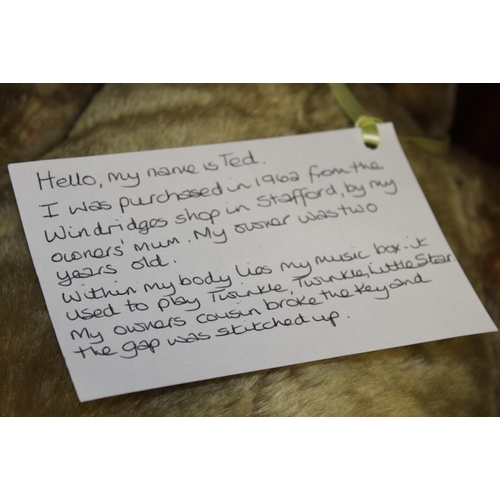 Hello, my name is Ted.
I was purchased in 1962 from the
Windridges shop in Stafford, by my
owners' mum. My owner was two
years old.
Within my body lies my music box it
used to play Twinkle, Twinkle, Little Star.
My owners cousin broke the key and
the gap was stitched up.